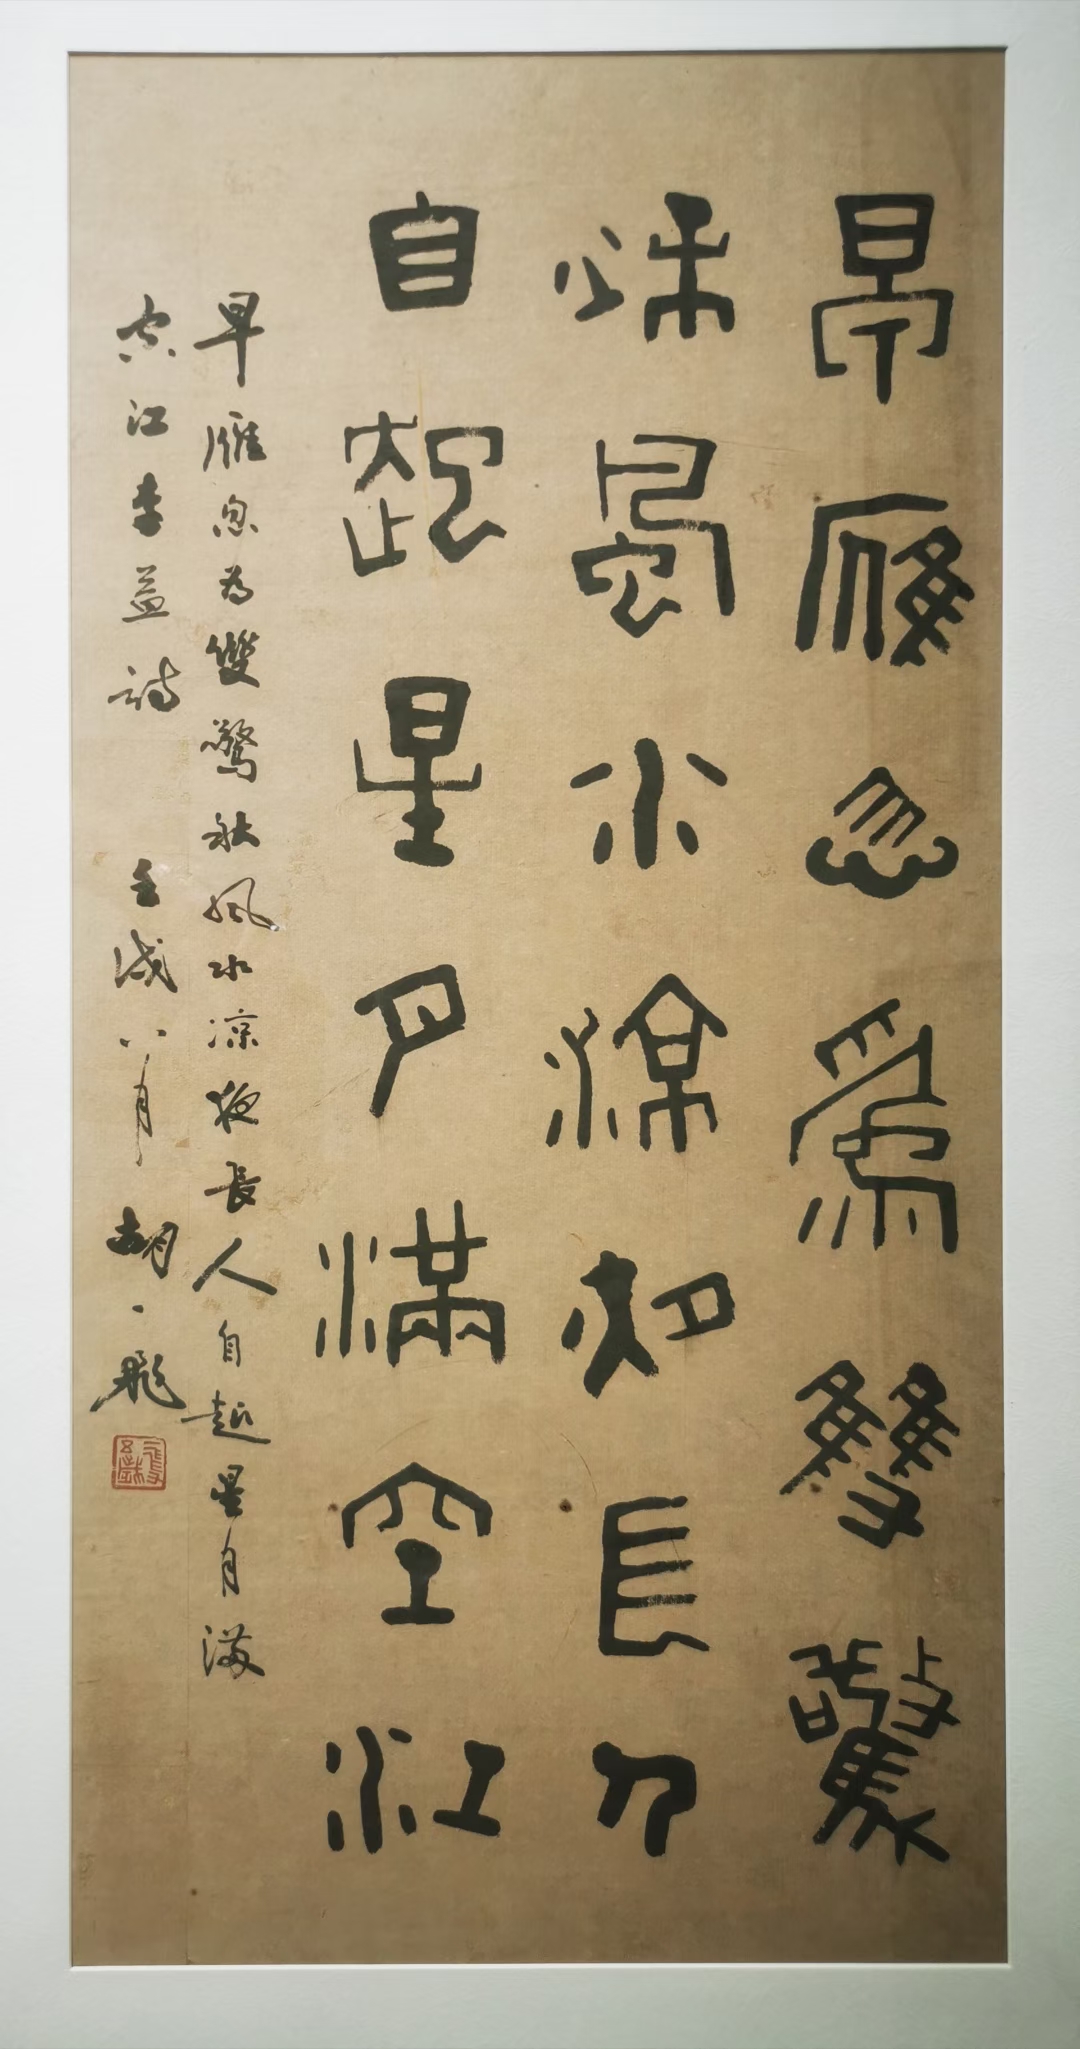 早雁忽爲雙驚
秌風水涼夜長人
自起星月滿空江
早雁忽为雙驚秋風水凉夜長人自起星月满
空江李益詩 壬戌八月 胡一飛